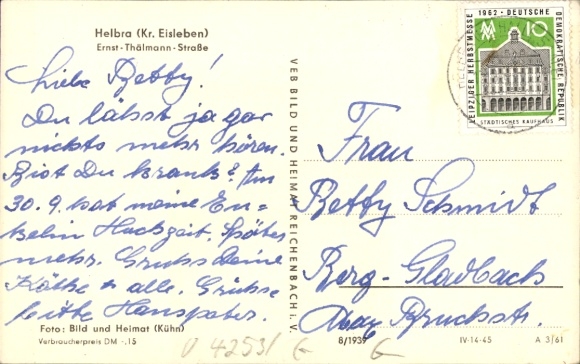 Helbra (Kr. Eisleben)
Ernst-Thälmann-Straße
Liebe Betty!
Du läßst ja gar
nichts mehr hören.
Bist Du krank? Am
30. 9. hat meine En=
kelin Hochzeit. Später
mehr. Gruß Deine
Käthe + alle. Grüße
bitte Hanspeter.
Foto: Bild und Heimat (Kühn)
Verbraucherpreis DM -,15
VEB BILD UND HEIMAT REICHENBACH i. V.
LEIPZIGER HERBSTMESSE 1962 · DEUTSCHE DEMOKRATISCHE REPUBLIK
10
STÄDTISCHES KAUFHAUS
Frau
Betty Schmidt
Berg-Gladbach
Bruchstr.
8/1939
IV-14-45
A 3/61